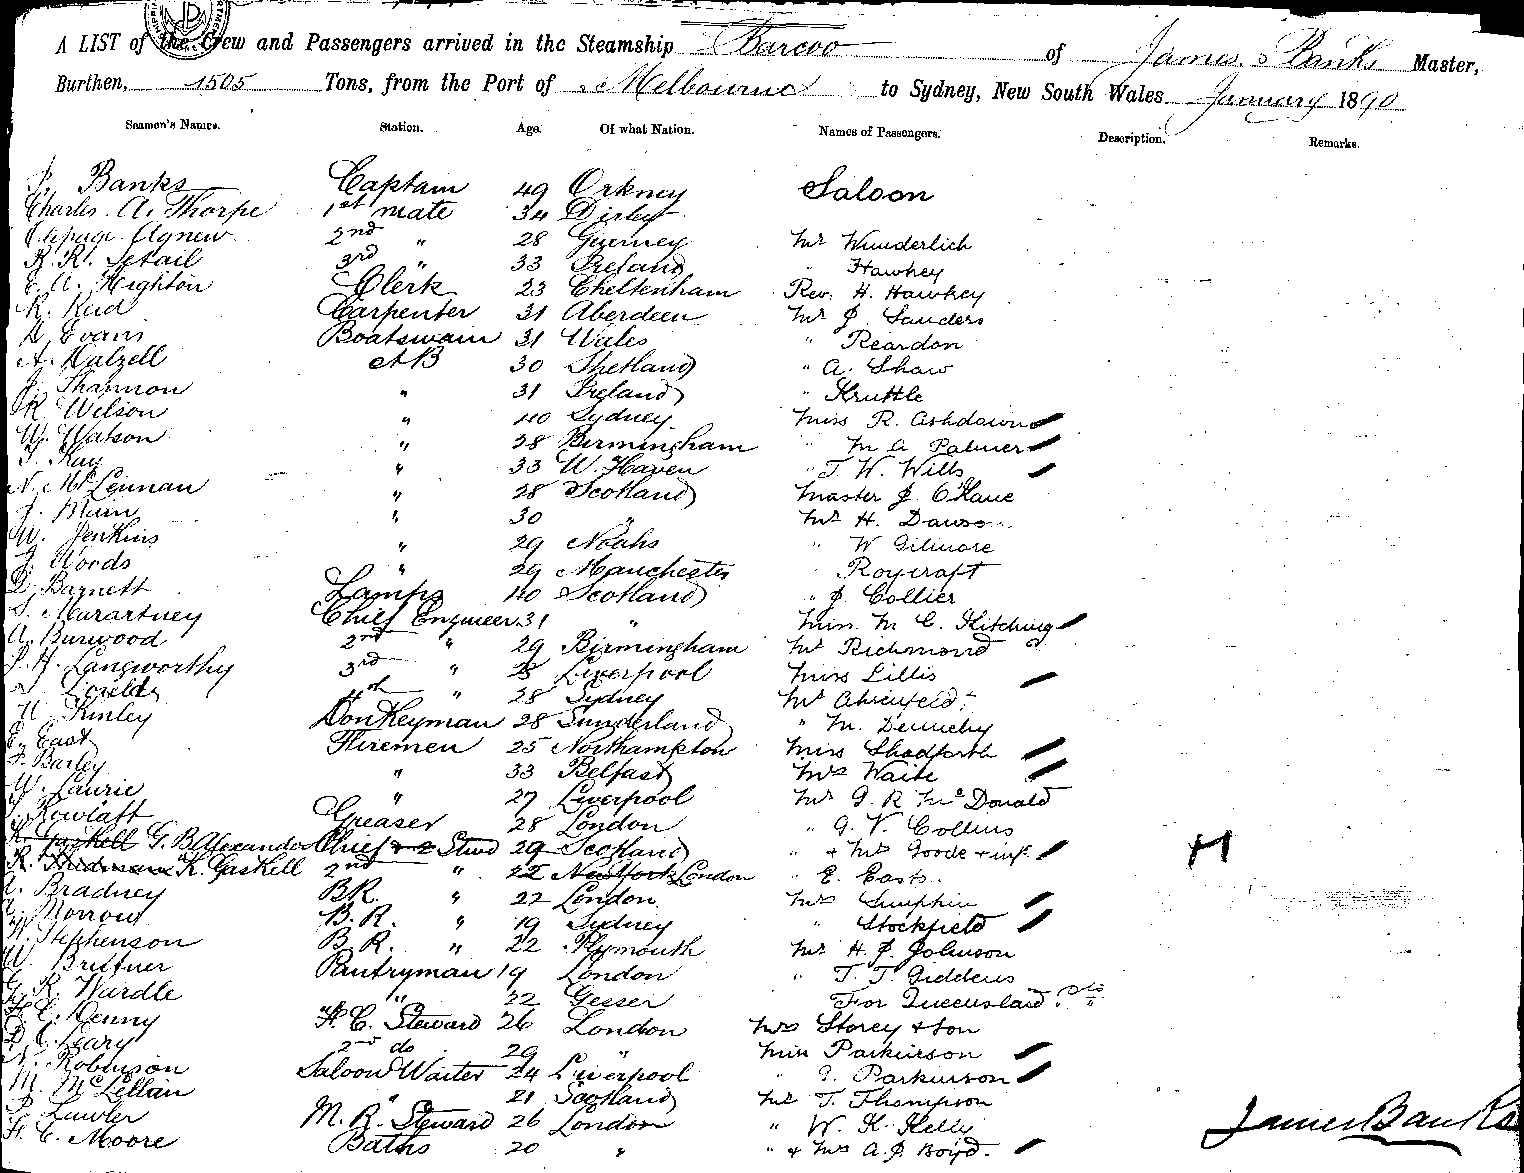 A LIST of the Crew and Passengers arrived in the Steamship Barcoo of James Banks Master,
Burthen, 1505 Tons, from the Port of Melbourne to Sydney, New South Wales January 1890
Seamen's Names. Station. Age. Of what Nation. Names of Passengers. Description. Remarks.
J. Banks Captain 49 Orkney Saloon
Charles A. Thorpe 1st mate 34 Dirby
Agnew 2nd " 28 Guerney Mr Wunderlich
R. R. 3rd " 33 Ireland " Hawkey
E. A. Highton Clerk 23 Cheltenham Rev. H. Hawkey
R. Reid Carpenter 31 Aberdeen Mr J. Sanders
D. Evans Boatswain 31 Wales " Reardon
A. Dalzell AB 30 Shetland " A. Shaw
J. Shannon " 31 Ireland " Kruttle
R. Wilson " 40 Sydney Miss R. Ashdown
W. Watson " 28 Birmingham " M A Palmer
T. Kay " 33 W. Haven " T. W. Wills
N. McLennan " 28 Scotland Master J. O'Kane
J. " 30 " Mr H.
W. Jenkins " 29 " W Gilmore
J. Woods " 29 Manchester " Roycraft
D. Barnett Lamps 40 Scotland " J. Collier
Macartney Chief Engineer 31 " Miss M C. Kitching
A. Burwood 2nd " 29 Birmingham Mr Richmond
J. H. Langworthy 3rd " Liverpool Miss Lillis
4th " 28 Sydney Mr
H. Kinley Donkeyman 28 Sunderland " M. Dennehy
E. East Firemen 25 Northampton Miss Shadforth
F. Barley " 33 Belfast Mrs Waite
W. Laurie " 27 Liverpool Mr G. R McDonald
Rowlatt Greaser 28 London " G. V. Collins
K. Gaskell G. B Alexander Chief & 2 Stwd 29 Scotland " & Mrs Goode & inf.
R. K. Gaskell 2nd " 22 New York London " E. Easts
Bradney BR. " 22 London Mrs Simpkin
Morrow B. R. " 19 Sydney " Stockfield
Stephenson B R. " 22 Plymouth Mr H. J. Johnson
Brittner Pantryman 19 London " T. T. Giddens
G. R. Wardle " 22 Gesser For Queensland Pts
H. C. Denny F. C. Steward 26 London Mrs Storey & Son
D. O'Leary 2nd do 29 " Miss Parkinson
N. Robinson Saloon Waiter 24 Liverpool " G. Parkinson
M. McLellan " 21 Scotland Mr T. Thompson
P. Lawler M. R. Steward 26 London " W. K. Kelly
H. C. Moore Baths 20 " " & Mrs A. J. Boyd.
H
James Banks